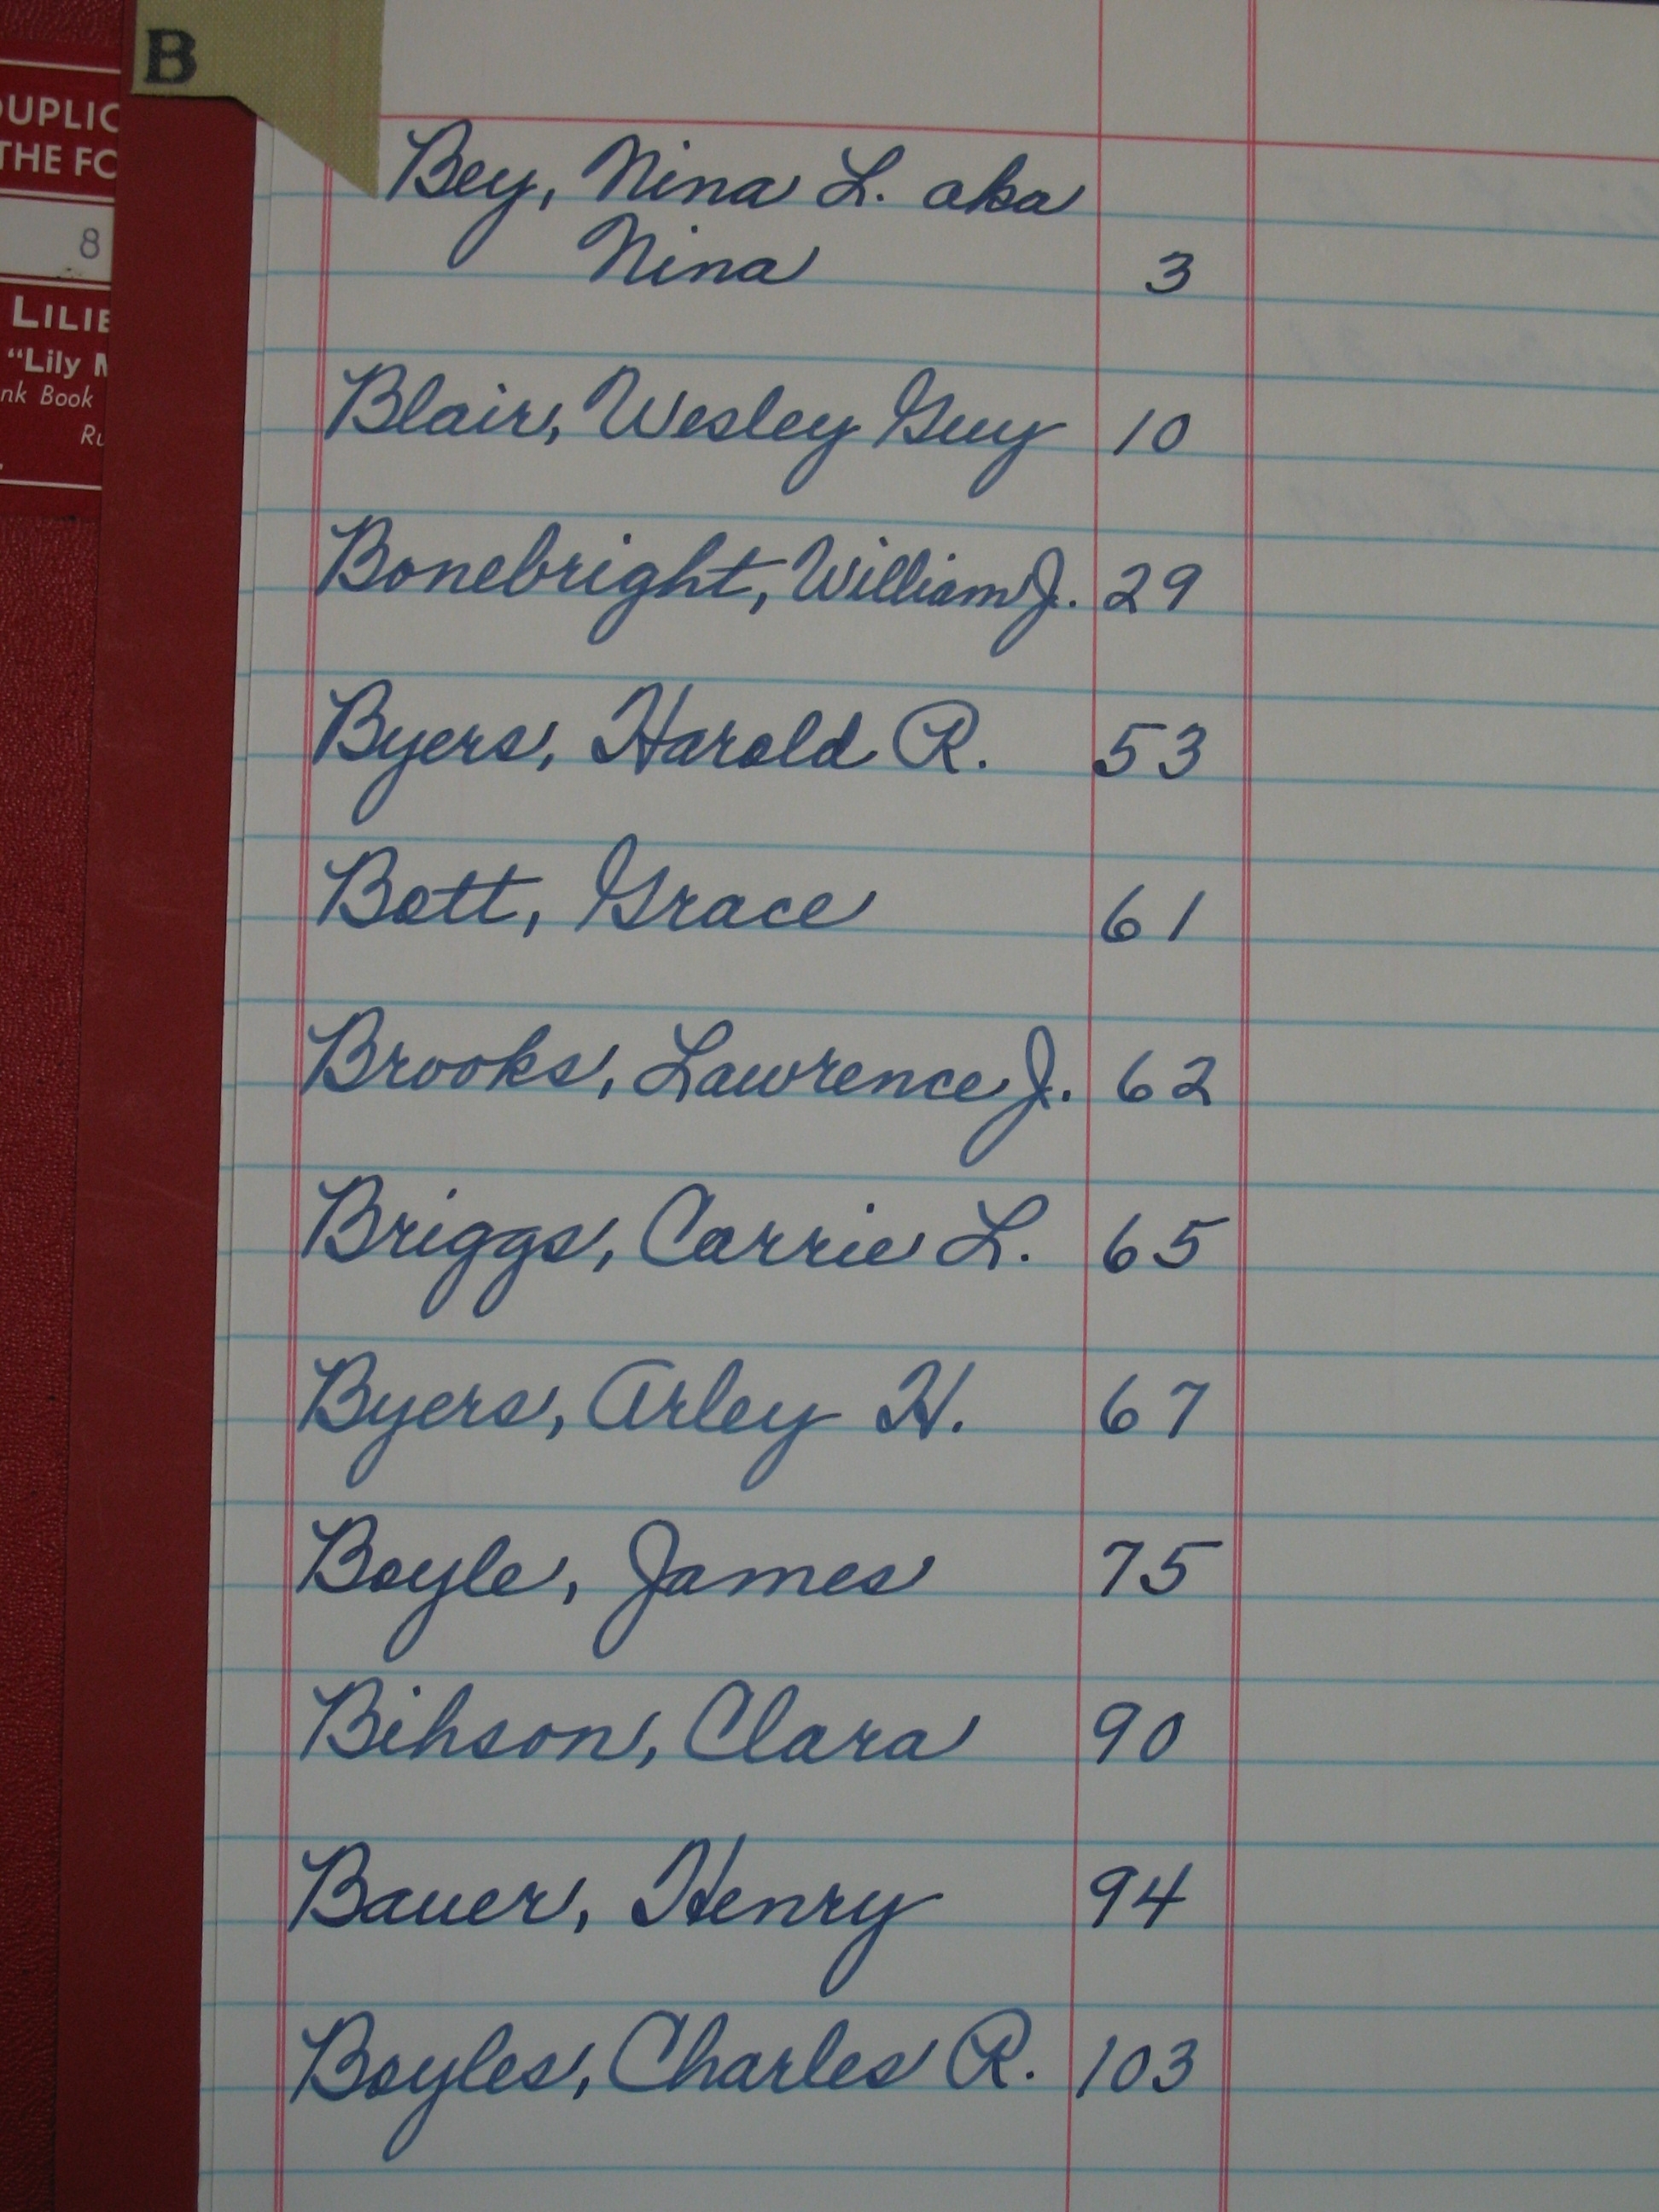 B
DUPLIC
THE FO
8
LILIE
"Lily M
nk Book
Ru
Bey, Nina L. aka
Nina 3
Blair, Wesley Guy 10
Bonebright, William J. 29
Byers, Harold R. 53
Bott, Grace 61
Brooks, Lawrence J. 62
Briggs, Carrie L. 65
Byers, Arley H. 67
Boyle, James 75
Bihson, Clara 90
Bauer, Henry 94
Boyles, Charles R. 103